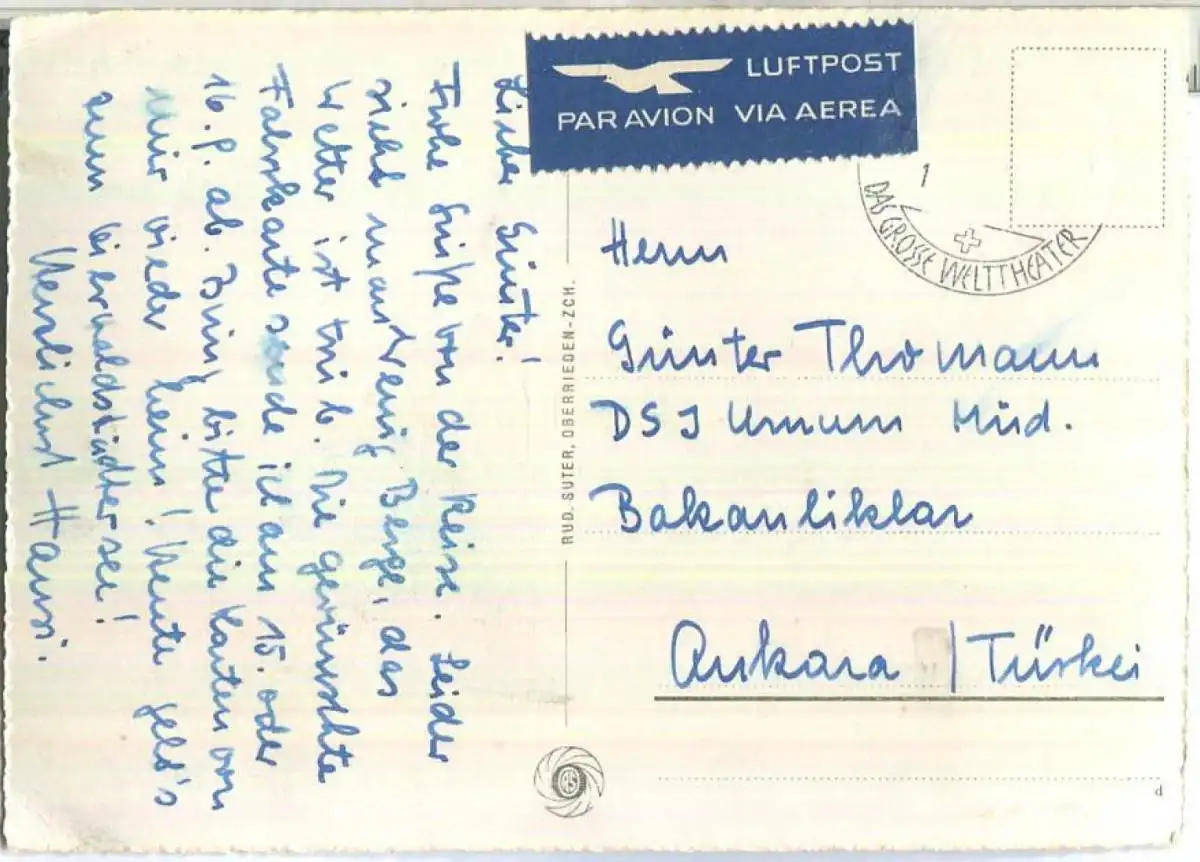 Lieber Günter!
Frohe Grüße von der Reise. Leider
sieht man wenig Berge, das
Wetter ist trüb. Die gewünschte
Fahrkarte sende ich am 15. oder
16. 9. ab. Bring bitte die Karten von
mir wieder heim! Heute geht's
zum Vierwaldstädter see!
Herzlichst Hansi.
LUFTPOST
PAR AVION VIA AEREA
1
DAS GROSSE WELTTHEATER
RUD. SUTER, OBERRIEDEN-ZCH.
Herrn
Günter Thomann
DSJ Umum Müd.
Bakanliklar
Ankara / Türkei
d